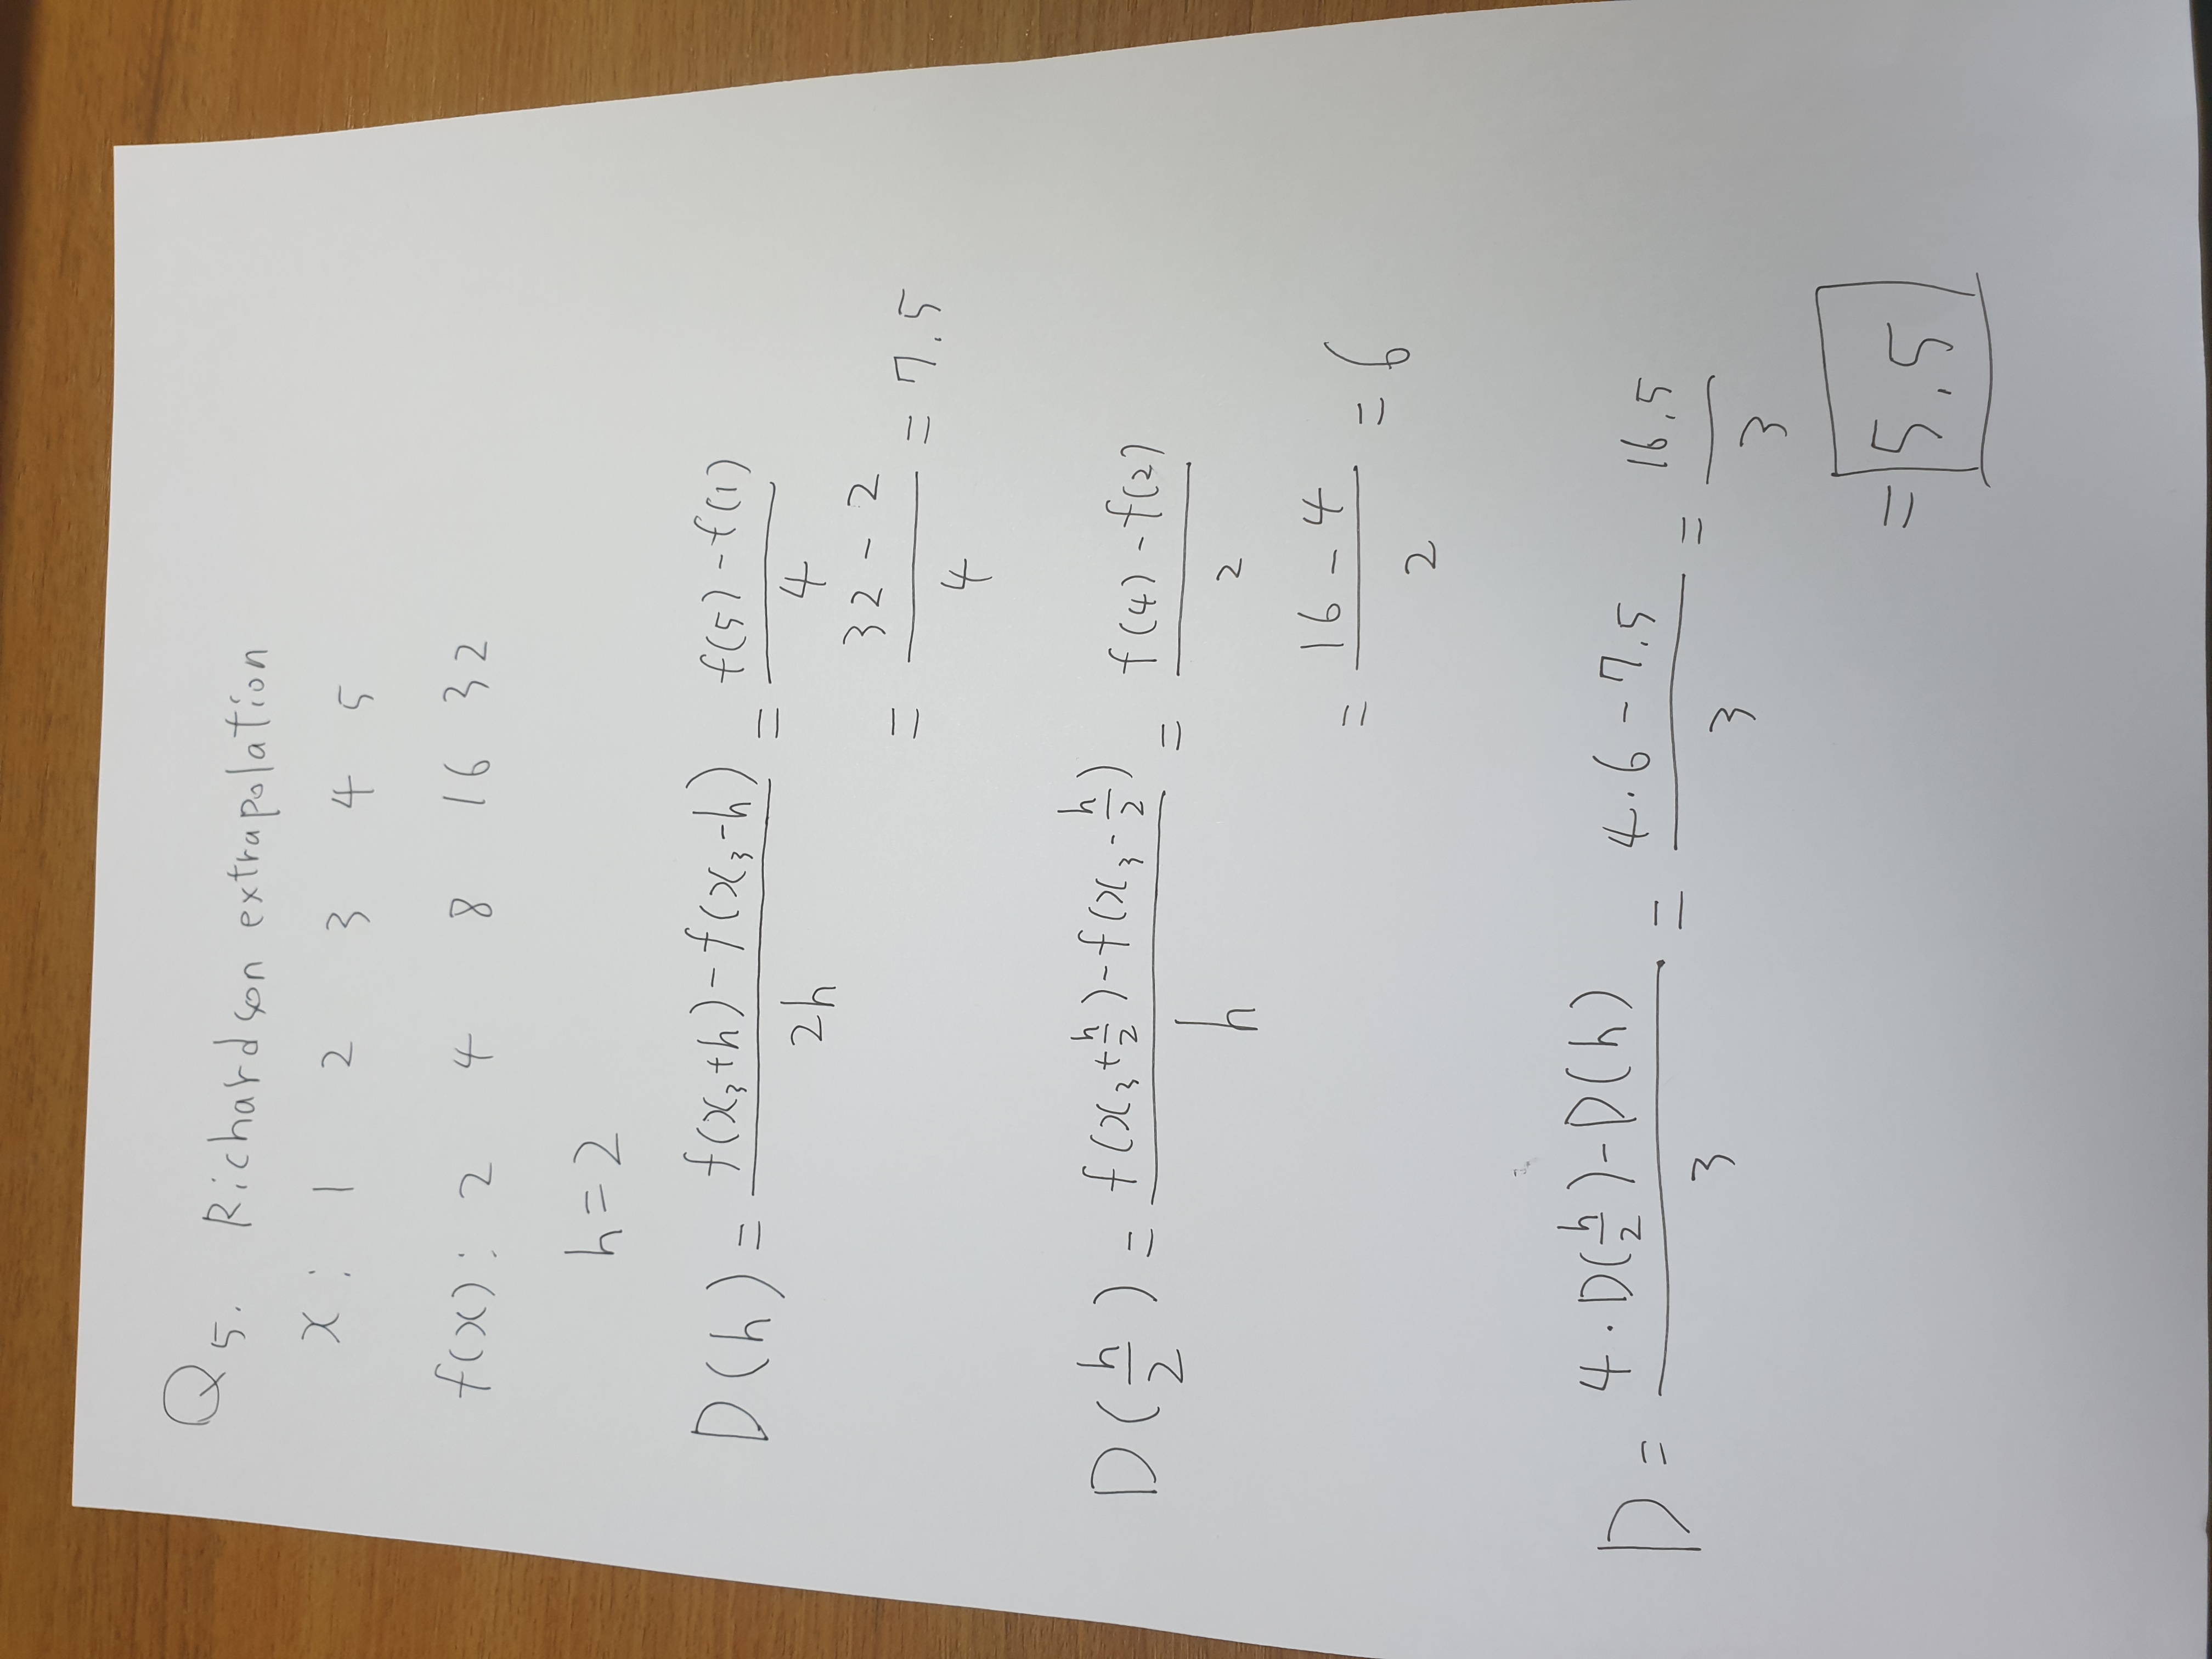 Q5. Richardson extrapolation
x : 1 2 3 4 5
f(x) : 2 4 8 16 32
h = 2
D(h) = (f(x₃+h) - f(x₃-h)) / 2h = (f(5) - f(1)) / 4
= (32 - 2) / 4 = 7.5
D(h/2) = (f(x₃+h/2) - f(x₃-h/2)) / h = (f(4) - f(2)) / 2
= (16 - 4) / 2 = 6
D = (4·D(h/2) - D(h)) / 3 = (4·6 - 7.5) / 3 = 16.5 / 3
= 5.5